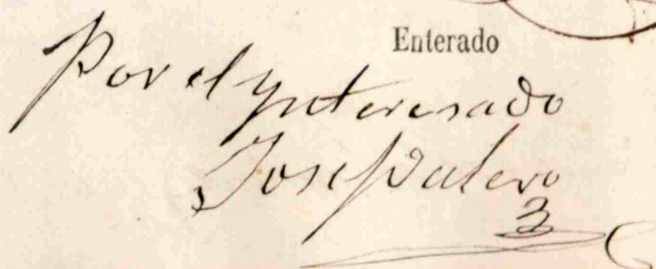 Enterado
Por el ynteresado
Jose Valero